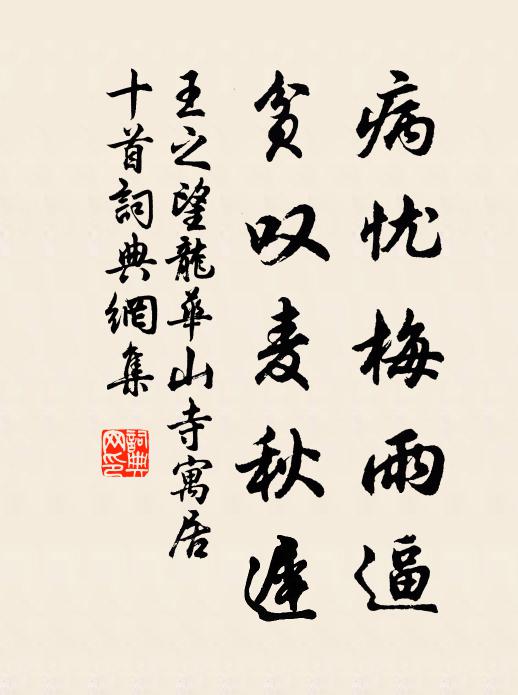 病忧梅雨逼
贫叹麦秋遲
王之望龍華山寺寓居
十首詞典網集
詞典
网印